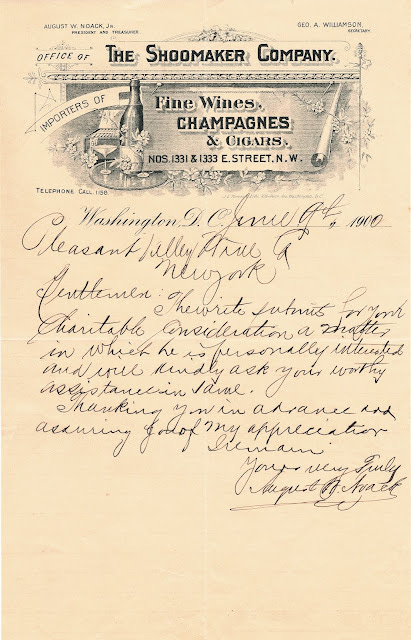 AUGUST W. NOACK, JR.
PRESIDENT AND TREASURER
GEO. A. WILLIAMSON,
SECRETARY.
OFFICE OF THE SHOOMAKER COMPANY.
IMPORTERS OF
Fine Wines,
CHAMPAGNES
& CIGARS.
NOS. 1331 & 1333 E. STREET, N.W.
TELEPHONE CALL, 1158.
Washington, D. C. June 1900
Pleasant Valley Wine Co
New York
Gentlemen:
The write submits for your
Charitable Consideration a matter
in which he is personally interested
and will kindly ask your worthy
assistance in same.
Thanking you in advance and
assuring you of my appreciation
I remain
Yours very Truly
August W. Noack